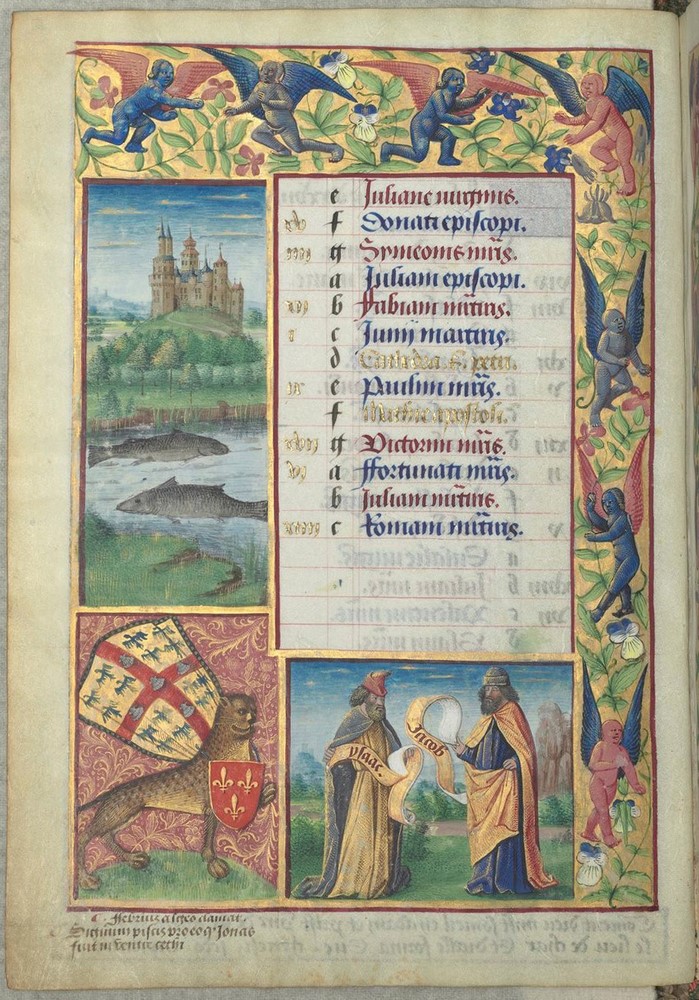 e Juliane virginis.
xv f Donati episcopi.
iiii g Symeonis mris.
a Juliani episcopi.
xii b Fabiani mrtiris.
i c Junii martiris.
d Cathedra s. petri.
ix e Paulini mris.
f Mathie apostoli.
xvii g Victorini mris.
vi a ffortunati mris.
b Juliani mrtiris.
xiiii c Romani mrtiris.
ysaac.
Jacob
ffebrius a
clamat.
Signum piscis pro eo q Jonas
fuit in ventre ceti